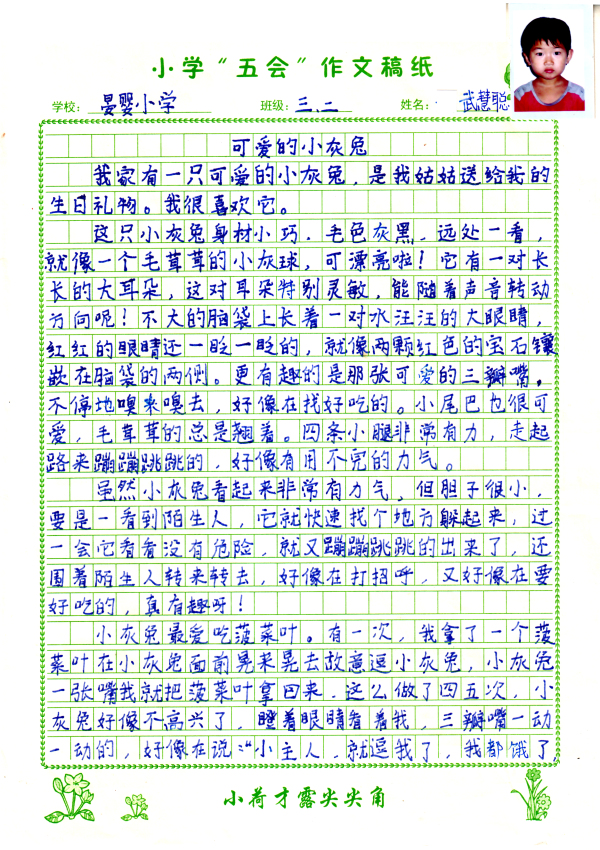 小学“五会”作文稿纸
学校： 晏婴小学 班级：三、二 姓名： 武慧聪
可爱的小灰兔
我家有一只可爱的小灰兔，是我姑姑送给我的
生日礼物。我很喜欢它。
这只小灰兔身材小巧．毛色灰黑．远处一看，
就像一个毛茸茸的小灰球，可漂亮啦！它有一对长
长的大耳朵，这对耳朵特别灵敏，能随着声音转动
方向呢！不大的脑袋上长着一对水汪汪的大眼睛，
红红的眼睛还一眨一眨的，就像两颗红色的宝石镶
嵌在脑袋的两侧。更有趣的是那张可爱的三瓣嘴。
不停地嗅来嗅去，好像在找好吃的。小尾巴也很可
爱，毛茸茸的总是翘着。四条小腿非常有力，走起
路来蹦蹦跳跳的，好像有用不完的力气。
虽然小灰兔看起来非常有力气，但胆子很小，
要是一看到陌生人，它就快速找个地方躲起来，过
一会它看看没有危险，就又蹦蹦跳跳的出来了，还
围着陌生人转来转去，好像在打招呼，又好像在要
好吃的，真有趣呀！
小灰兔最爱吃菠菜叶。有一次，我拿了一个菠
菜叶在小灰兔面前晃来晃去故意逗小灰兔，小灰兔
一张嘴我就把菠菜叶拿回来．这么做了四五次，小
灰兔好像不高兴了，瞪着眼睛看着我，三瓣嘴一动
一动的，好像在说：“小主人．就逗我了，我都饿了
小荷才露尖尖角